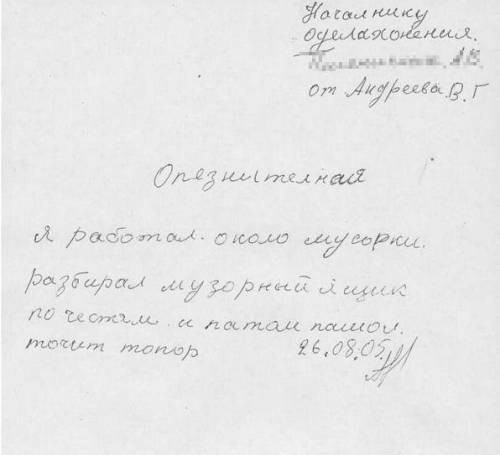 Началнику
оделахонения.
А.В.
от Андреева В.Г
Опязнителная
я работал. около мусорки.
разбирал музорный ящик
по честям. и патом пашол.
точит топор 26.08.05